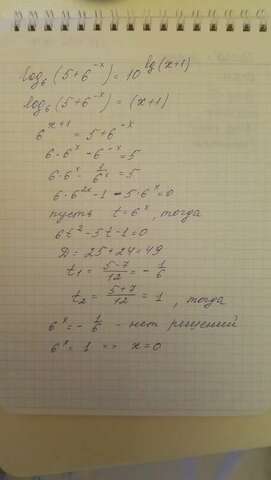 log₆(5+6⁻ˣ) = 10^lg(x+1)
log₆(5+6⁻ˣ) = (x+1)
6ˣ⁺¹ = 5+6⁻ˣ
6·6ˣ - 6⁻ˣ = 5
6·6ˣ - 1/6ˣ = 5
6·6²ˣ - 1 - 5·6ˣ = 0
пусть t = 6ˣ, тогда
6t² - 5t - 1 = 0
D = 25+24 = 49
t₁ = (5-7)/12 = - 1/6
t₂ = (5+7)/12 = 1, тогда
6ˣ = - 1/6 - нет решений
6ˣ = 1 => x = 0